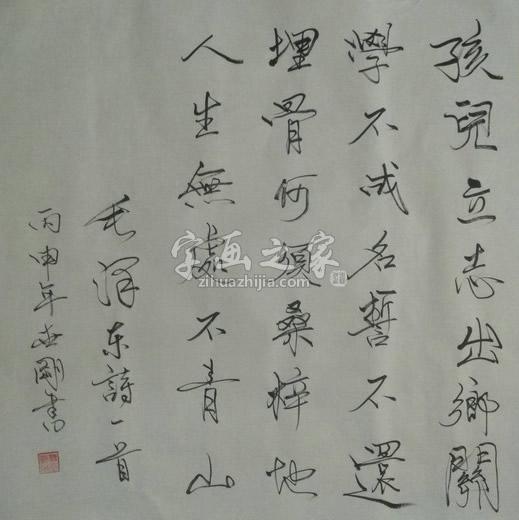 孩兒立志出鄉關
學不成名誓不還
埋骨何須桑梓地
人生無處不青山
毛澤东詩一首
丙申年 剛書
字画之家
zihuazhijia.com